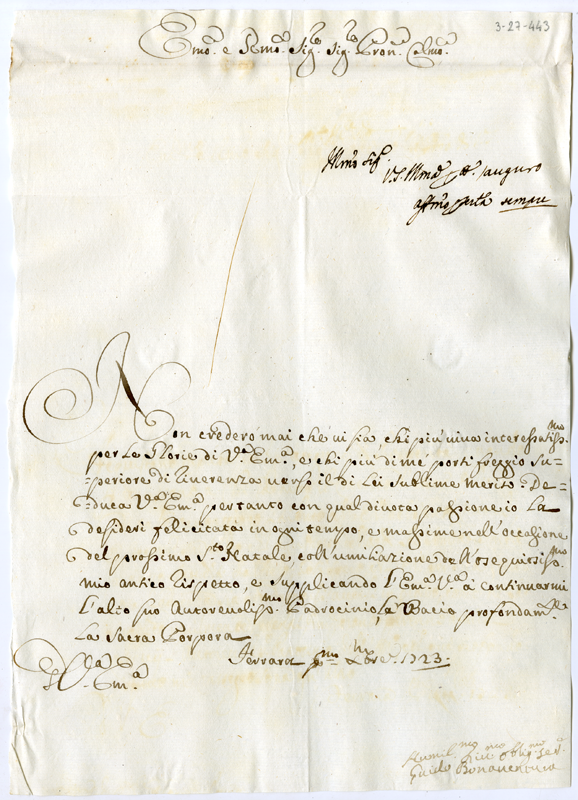 3-27-443
Emo. e Rmo. Sig.r Sig.r Pron. Colmo.
V.S. auguro
sempre
Non crederò mai che vi sia, chi più viva interessatissmo.
per le Glorie di V.a Em.a, e chi più di mè porti freggio su=
=periore di riverenza verso il di Lei sublime merito. De=
=duca V.a Em.a pertanto con qual divota passione io La
desideri felicitata in ogni tempo, e massime nell'occasione
del prossimo S.to Natale, coll'umiliazione dell'ossequiosissmo.
mio antico rispetto, e supplicando l'Em.a V.a à continuarmi
l'alto suo Autorevolissmo. Padrocinio, la Bacio profondam.te
La Sacra Porpora
Di V.a Em.a
Ferrara pmo. Xbre. 1723.
Humil.mo Div.mo Oblig.mo Ser.
Guido Bonaventura